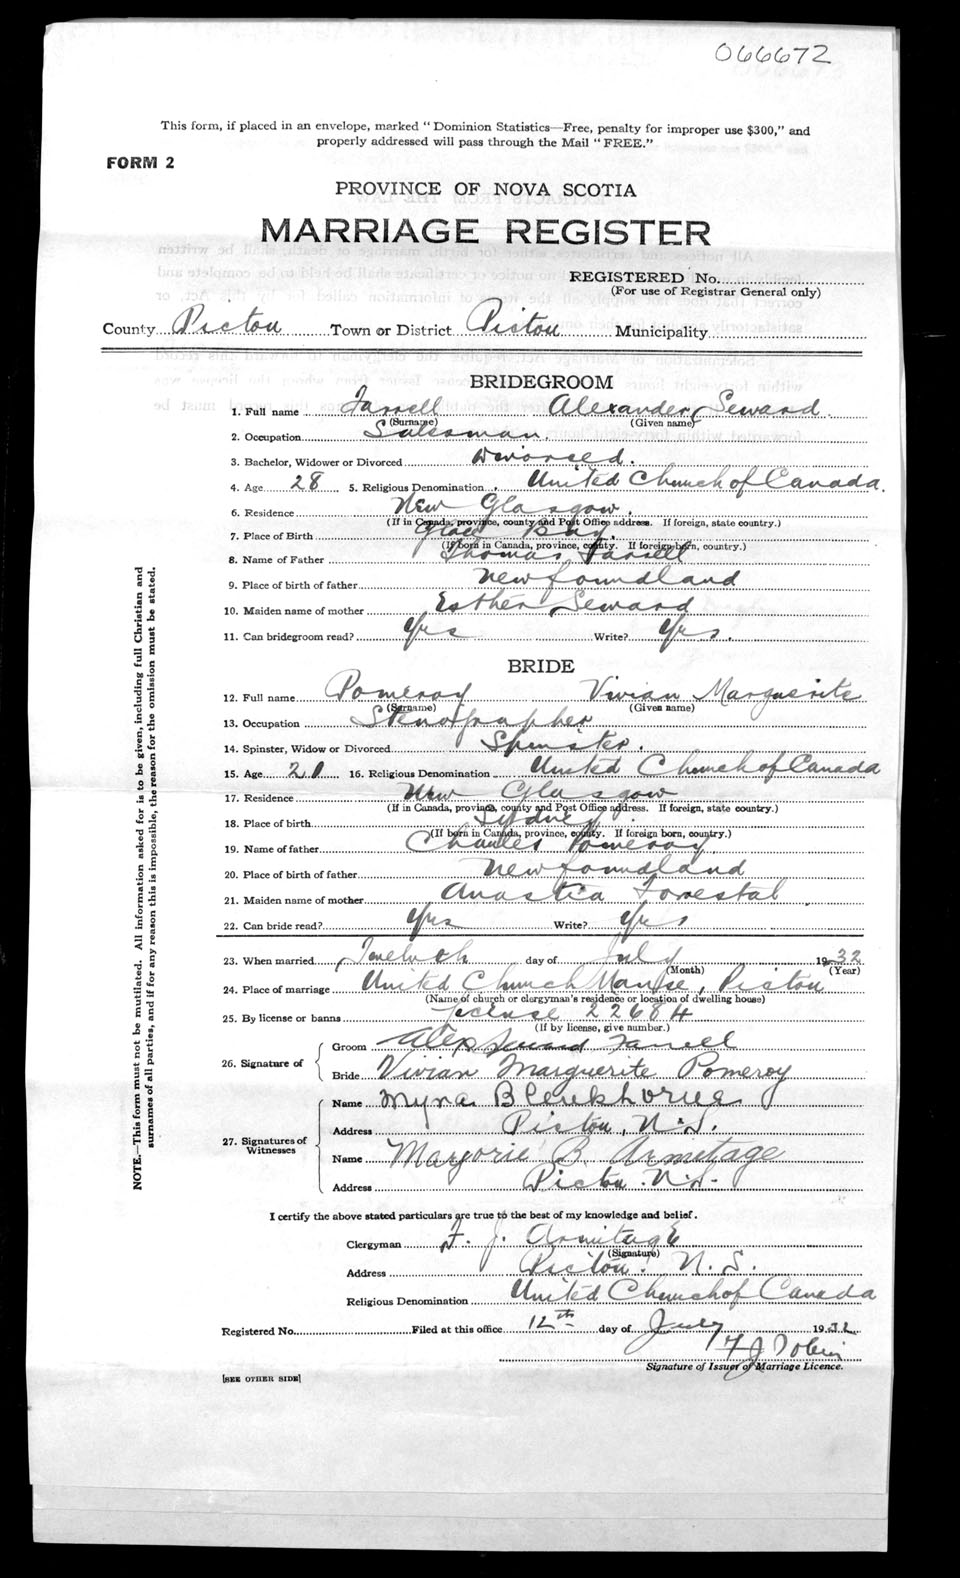 066672
This form, if placed in an envelope, marked "Dominion Statistics—Free, penalty for improper use $300," and
properly addressed will pass through the Mail "FREE."
FORM 2
PROVINCE OF NOVA SCOTIA
MARRIAGE REGISTER
REGISTERED No.
(For use of Registrar General only)
County Pictou Town or District Pictou Municipality
BRIDEGROOM
1. Full name Farrell Alexander Seward
(Surname) (Given name)
2. Occupation Salesman.
3. Bachelor, Widower or Divorced Divorced.
4. Age 28 5. Religious Denomination United Church of Canada.
6. Residence New Glasgow.
(If in Canada, province, county and Post Office address. If foreign, state country.)
7. Place of Birth Glace Bay.
(If born in Canada, province, county. If foreign born, country.)
8. Name of Father Thomas Farrell
9. Place of birth of father Newfoundland
10. Maiden name of mother Esther Seward
11. Can bridegroom read? Yes Write? Yes.
BRIDE
12. Full name Pomeroy Vivian Marguerite
(Surname) (Given name)
13. Occupation Stenographer
14. Spinster, Widow or Divorced Spinster.
15. Age 21 16. Religious Denomination United Church of Canada
17. Residence New Glasgow
(If in Canada, province, county and Post Office address. If foreign, state country.)
18. Place of birth Sydney.
(If born in Canada, province, county. If foreign born, country.)
19. Name of father Charles Pomeroy
20. Place of birth of father Newfoundland
21. Maiden name of mother Anastia Forrestal
22. Can bride read? Yes Write? Yes
23. When married Twelvth day of July 1932
(Month) (Year)
24. Place of marriage United Church Manse, Pictou
(Name of church or clergyman's residence or location of dwelling house)
25. By license or banns License 22684
(If by license, give number.)
26. Signature of
Groom Alex Seward Farrell
Bride Vivian Marguerite Pomeroy
27. Signatures of Witnesses
Name Myna Blenkhorne
Address Pictou, N.S.
Name Marjorie B. Armitage
Address Pictou. N.S.
I certify the above stated particulars are true to the best of my knowledge and belief.
Clergyman F. J. Armitage
(Signature)
Address Pictou. N.S.
Religious Denomination United Church of Canada
Registered No. Filed at this office 12th day of July 1932
Signature of Issuer of Marriage Licence.
[SEE OTHER SIDE]
NOTE.—This form must not be mutilated. All information asked for is to be given, including full Christian and
surnames of all parties, and if for any reason this is impossible, the reason for the omission must be stated.